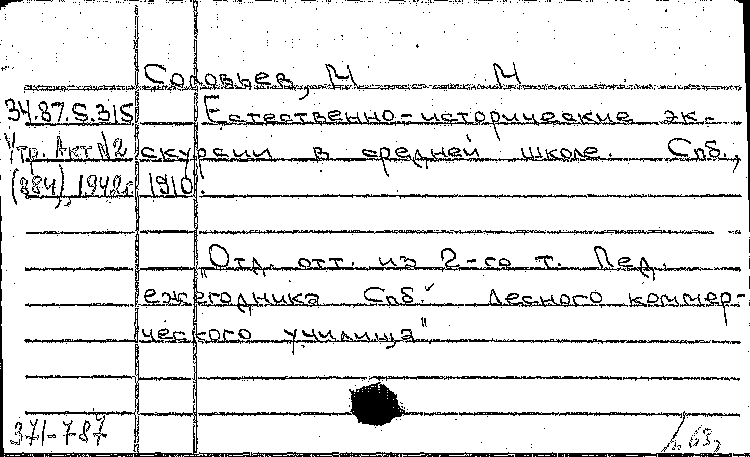 Соловьев, М М
34.87.5.315 Естественно-исторические эк-
Утр. Акт №2 скурсии в средней школе. Спб.,
(884), 1942г. 1910.
„Отд. отт. из 2-го т. Пед.
ежегодника Спб. Лесного коммер-
ческого училища"
371-787